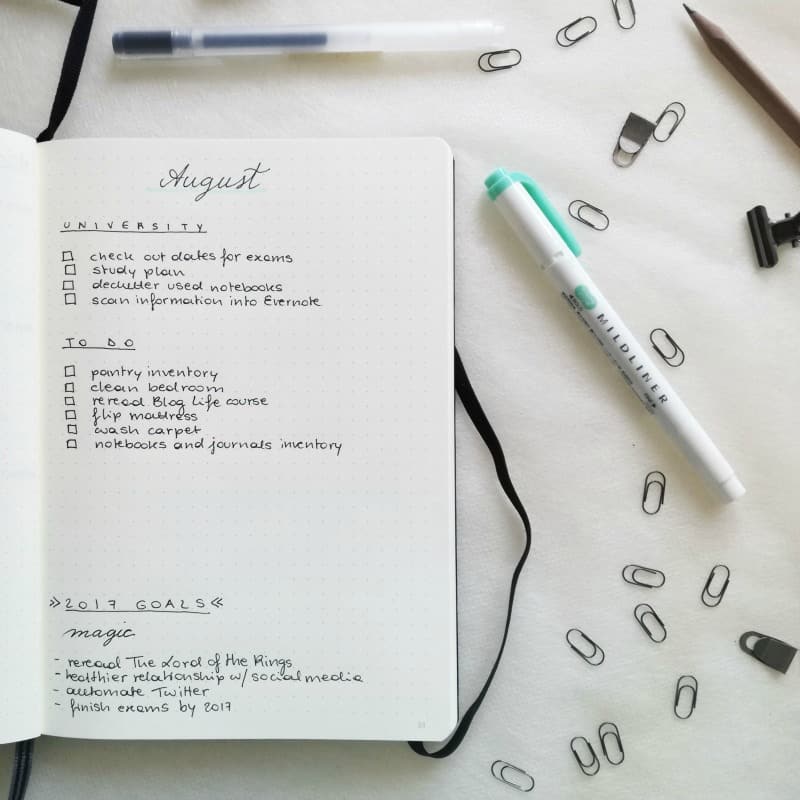 August
UNIVERSITY
check out dates for exams
study plan
declutter used notebooks
scan information into Evernote
TO DO
pantry inventory
clean bedroom
reread Blog Life course
flip mattress
wash carpet
notebooks and journals inventory
»2017 GOALS«
magic
- reread The Lord of the Rings
- healthier relationship w/ social media
- automate Twitter
- finish exams by 2017
MILDLINER